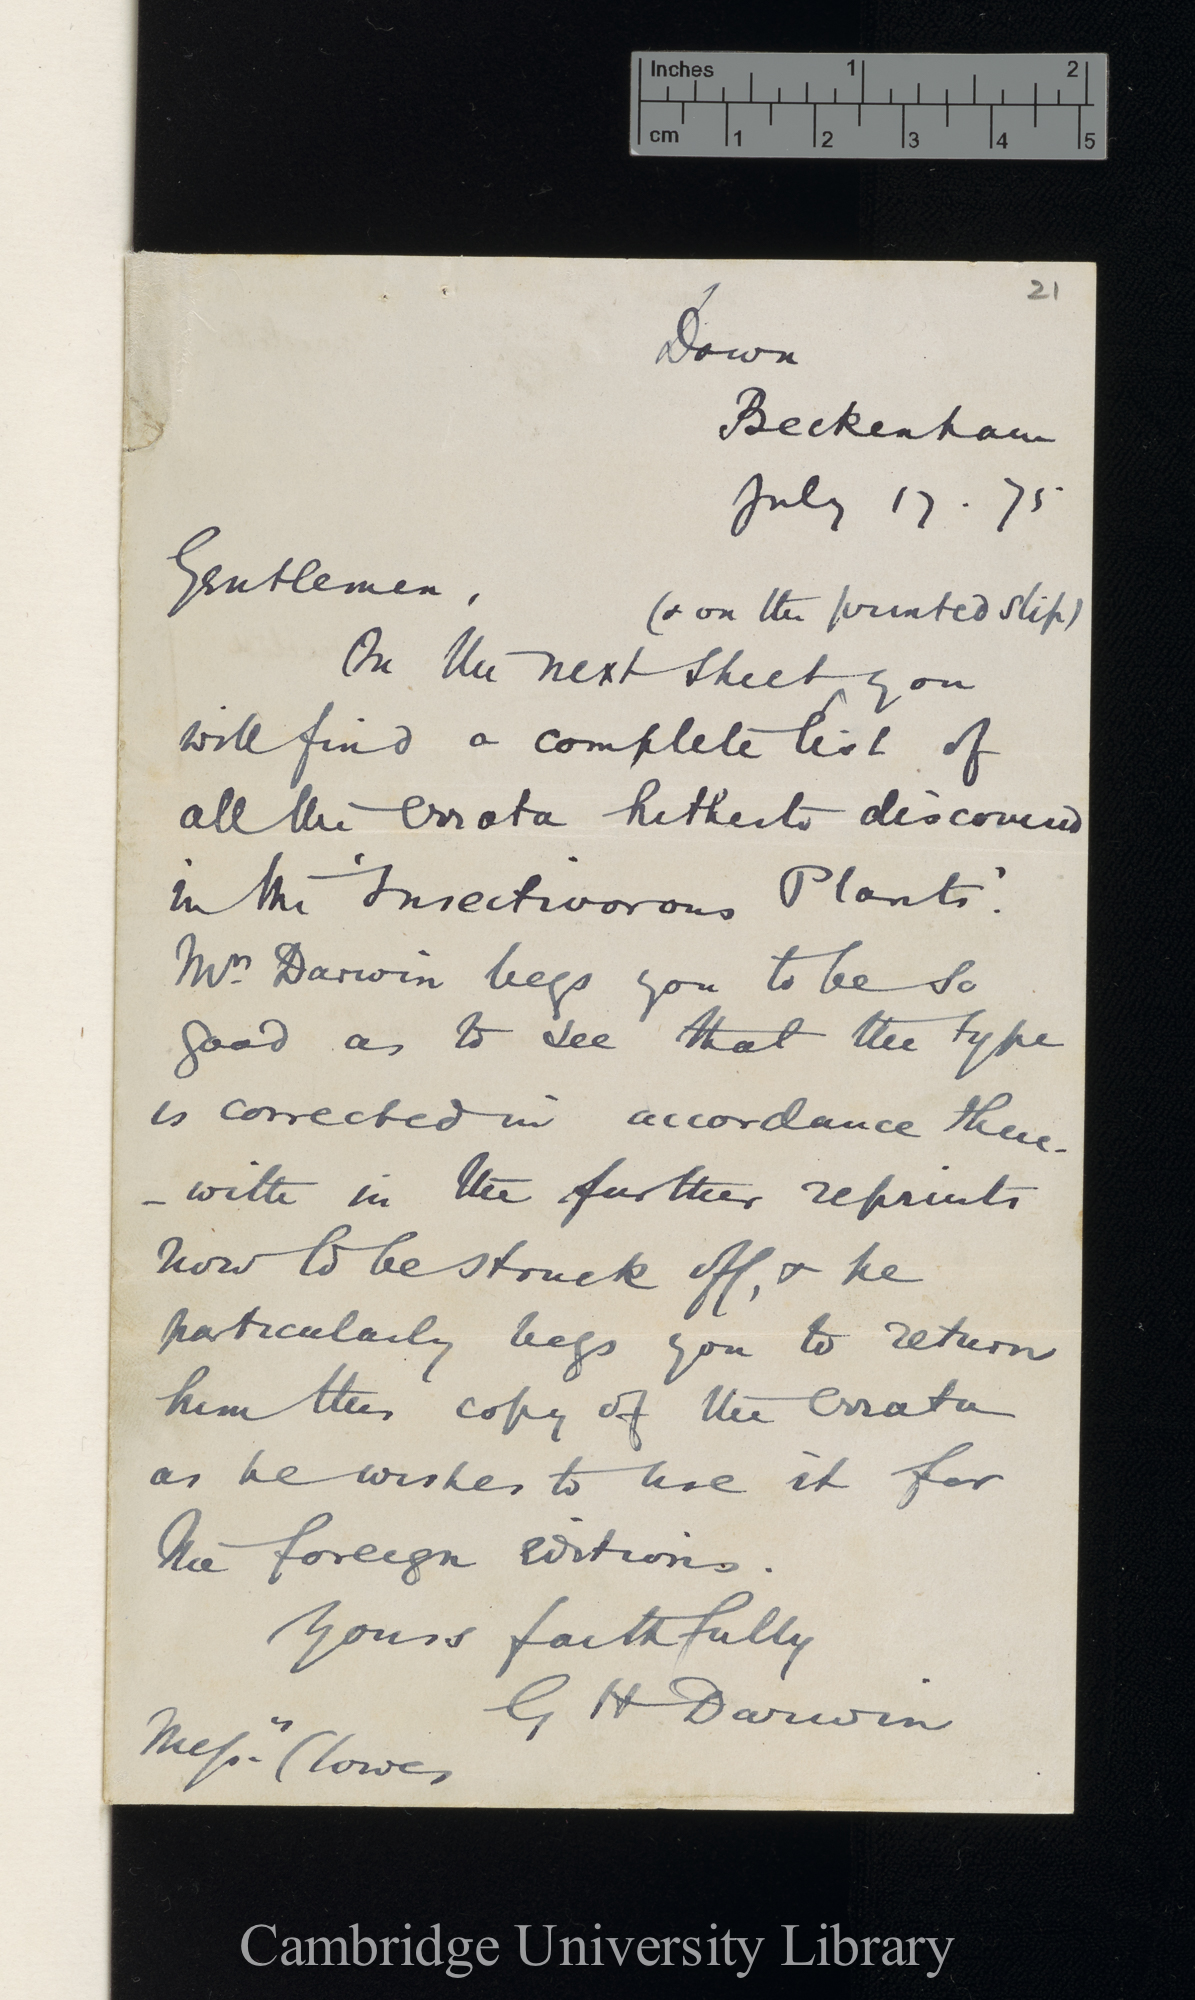 Inches 1 2
cm 1 2 3 4 5
21
Down
Beckenham
July 17. 75
Gentlemen,
(& on the printed slip)
On the next sheet you
will find a complete list of
all the errata hitherto discovered
in the 'Insectivorous Plants'.
Mr. Darwin begs you to be so
good as to see that the type
is corrected in accordance there-
-with in the further reprints
now to be struck off, & he
particularly begs you to return
him this copy of the errata
as he wishes to use it for
the foreign editions.
Yours faithfully
G H Darwin
Messrs. Clowes
Cambridge University Library